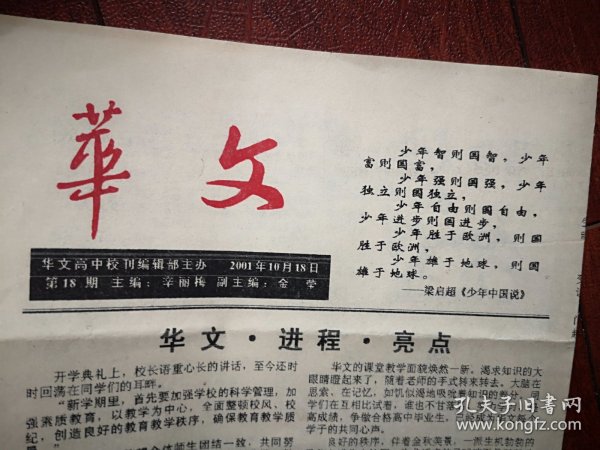 華文
少年智则国智，少年
富则国富，
少年强则国强，少年
独立则国独立，
少年自由则国自由，
少年进步则国进步，
少年胜于欧洲，则国
胜于欧洲，
少年雄于地球，则国
雄于地球。
——梁启超《少年中国说》
华文高中校刊编辑部主办 2001年10月18日
第18期 主编：辛丽梅 副主编：金莹
华文·进程·亮点
开学典礼上，校长语重心长的讲话，至今还时
时回荡在同学们的耳畔。
“新学期里，首先要加强学校的科学管理，加
强素质教育，以教学为中心，全面整顿校风、校
纪，创造良好的教育教学秩序，确保教育教学质
全体师生团结一致，共同努
华文的课堂教学面貌焕然一新。渴求知识的大
眼睛瞪起来了，随着老师的手式转来转去。大脑在
思索、在记忆，如饥似渴地吸吮着知识的
学们在互相比试着，谁也不甘落
高成绩，争做合格高中毕业生，已经成为华文每个
学子的共同心声。
良好的秩序，伴着金秋美景，一派生机勃勃的
孔夫子旧书网